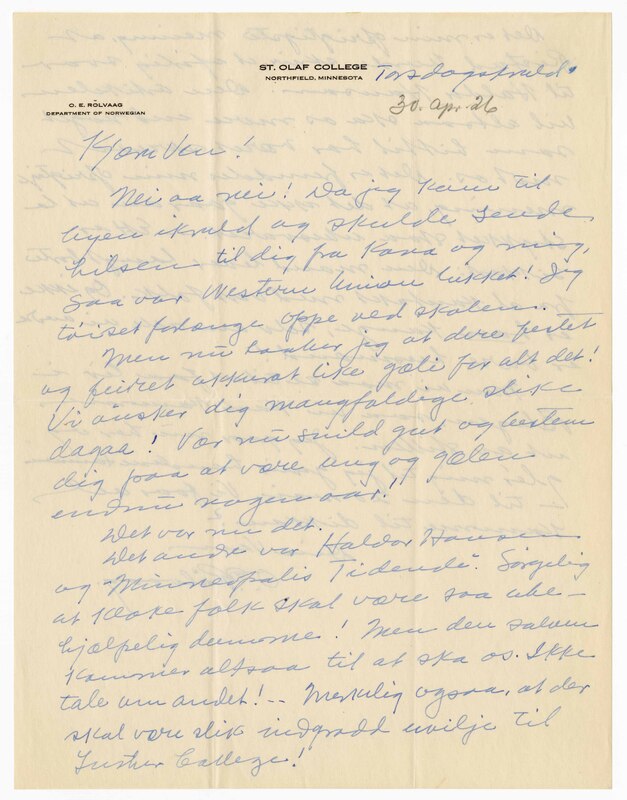 ST. OLAF COLLEGE
NORTHFIELD, MINNESOTA
Torsdagskveld.
30. Apr. 26
O. E. RÖLVAAG
DEPARTMENT OF NORWEGIAN
Kjære Ven!
Nei aa nei! Da jeg kom til
byen ikveld og skulde sende
hilsen til dig fra Kona og mig,
saa var Western Union lukket! Jeg
töiset forlænge oppe ved skolen.
Men nu haaber jeg at dere festet
og feiret akkurat like gæli for alt det!
Vi önsker dig mangfoldige slike
dagaa! Vær nu snild gut og bestem
dig paa at være ung og gælen
endnu nogen aar!
Det var nu det.
Det andre var Haldor Hansen
og "Minneapolis Tidende". Sörgelig
at kloke folk skal være saa ube-
hjælpelig dumme! Men den salven
kommer altsaa til at ska os. Ikke
tale om andet! -- Merkelig ogsaa, at der
skal være slik indgrodd uvilje til
Luther College!